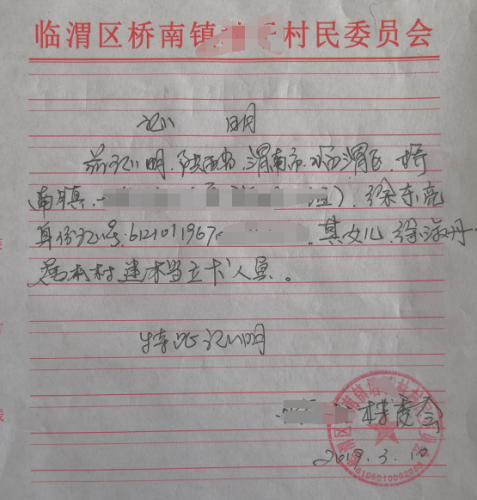 临渭区桥南镇 村民委员会
证 明
兹证明,陕西省,渭南市,临渭区,桥
南镇, ),徐东亮
身份证号:6121011967 ,其女儿,徐淑丹,
属本村建档立卡人员。
特此证明
村委会
2019.3.10